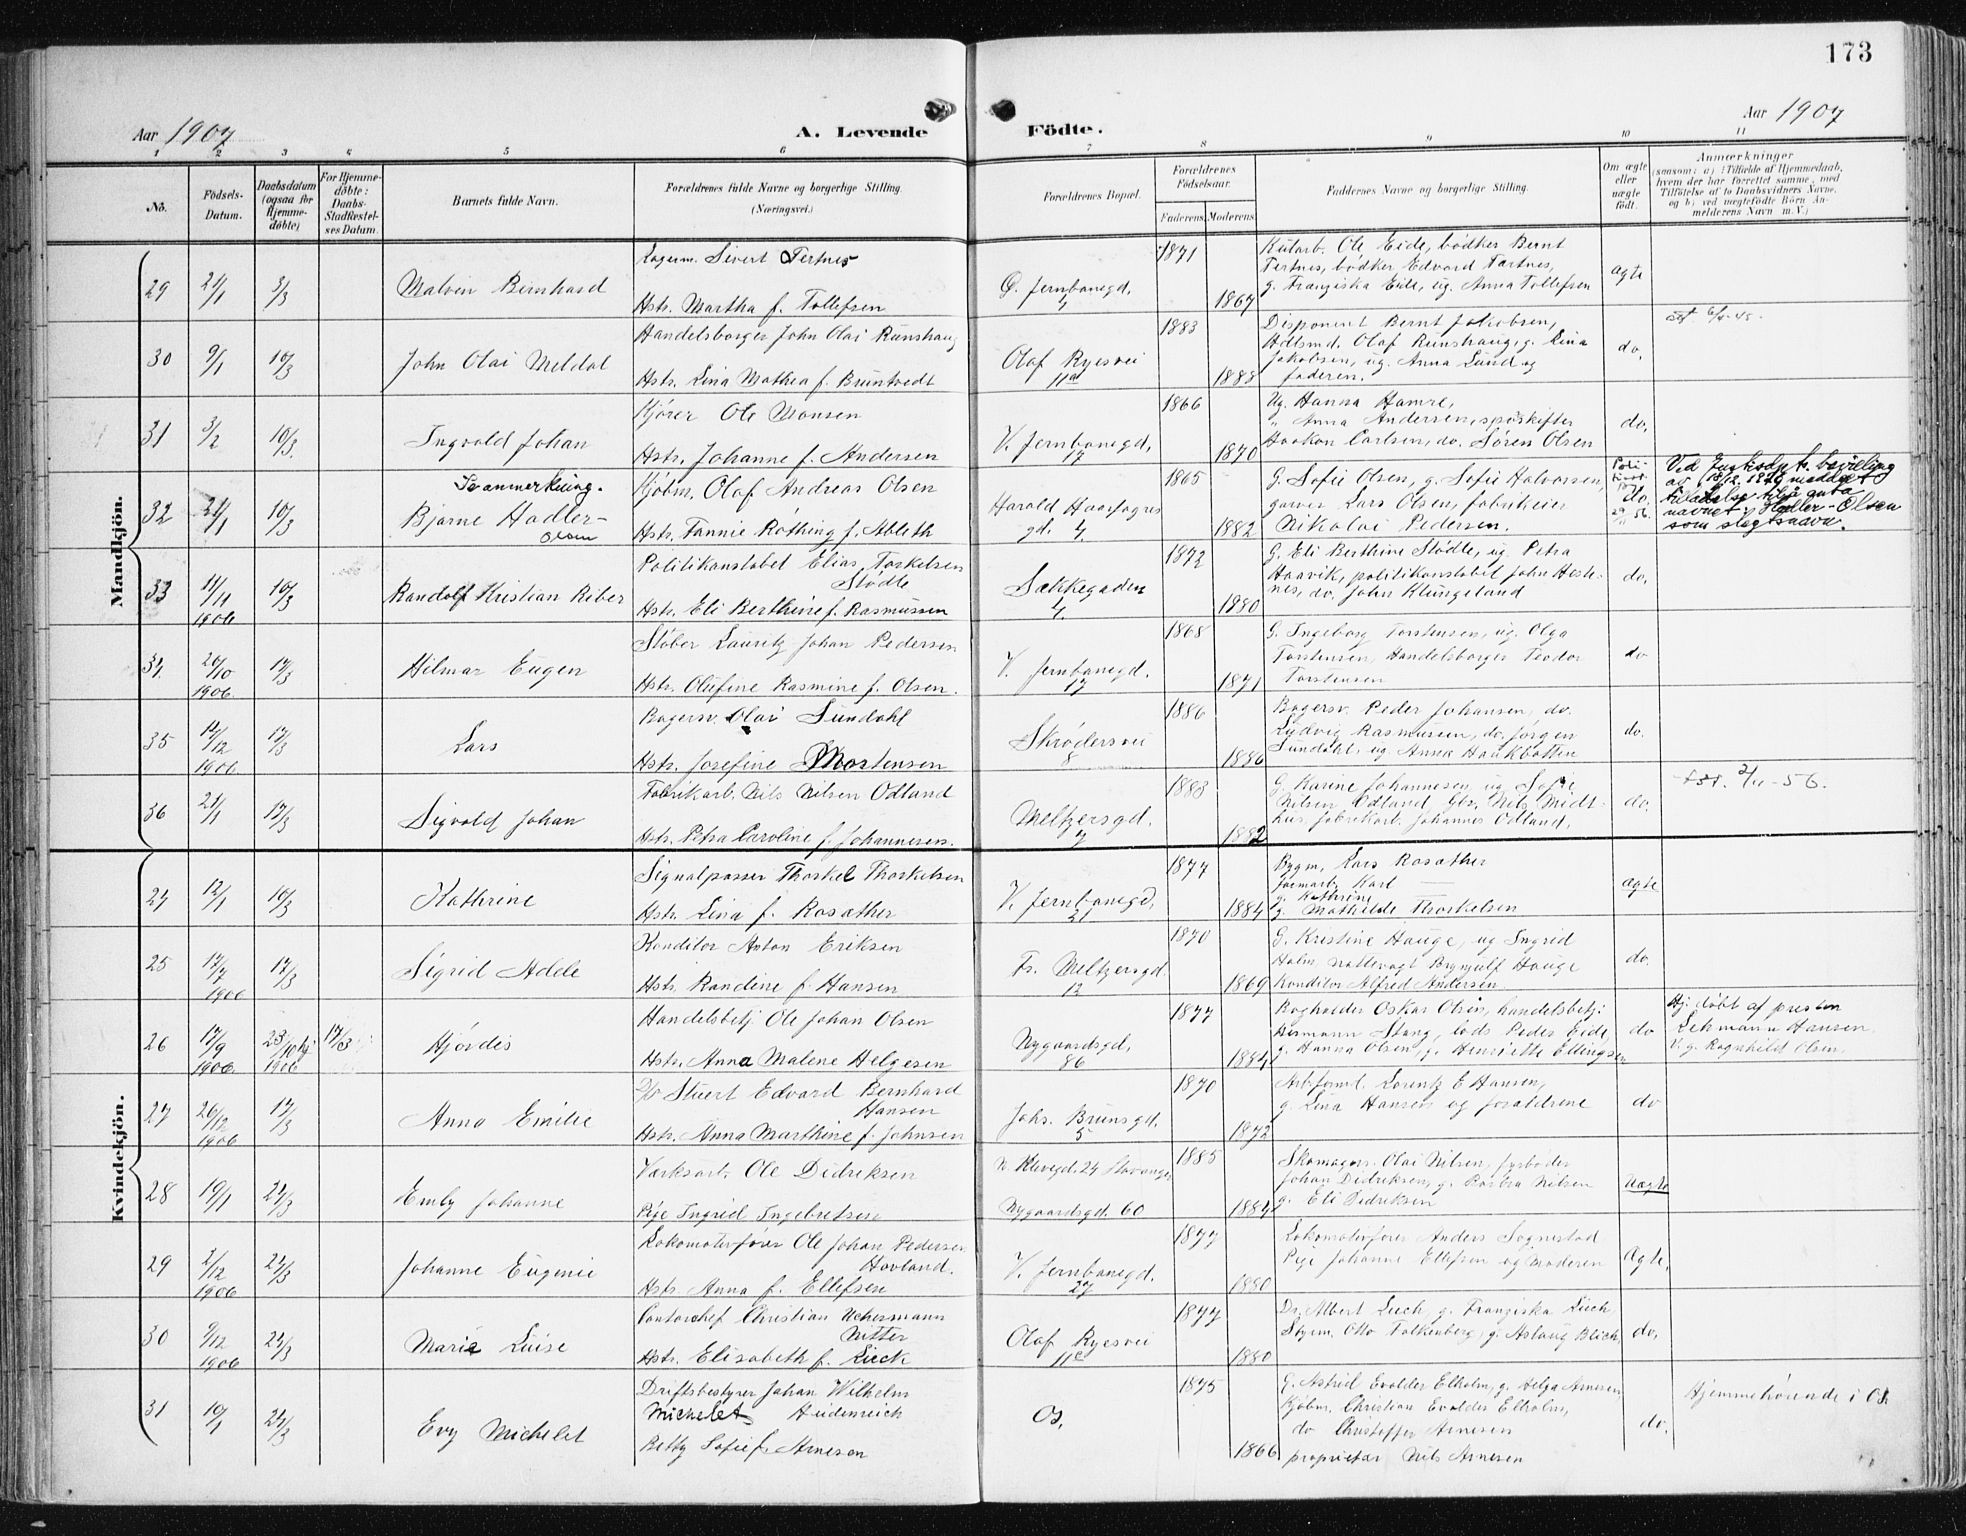 173
Aar 1907
A. Levende
Födte.
Aar 1907
1 2 3 4 5 6 7 8 9 10 11
No.
Födsels-
Datum.
Daabsdatum
(ogsaa for
Hjemme-
döbte)
For Hjemme-
döbte:
Daabs-
Stadfæstel-
ses Datum.
Barnets fulde Navn.
Forældrenes fulde Navne og borgerlige Stilling.
(Næringsvei.)
Forældrenes Bopæl.
Forældrenes
Födselsaar.
Faderens. Moderens.
Faddernes Navne og borgerlige Stilling.
Om ægte
eller
uægte
født.
Anmærkninger
(saasom: a) i Tilfælde af Hjemmedaab,
hvem der har forrettet samme, med
Tilföielse af to Daabsvidners Navne,
og b) ved uægtefödte Börn An-
melderens Navn m. V.)
Mandkjön.
29
24/1
3/3
Malvin Bernhard
Lagerm. Sivert Tertnes
Hstr. Martha f. Tollefsen
Ö. Jernbanegd.
4
1871
1867
Ole Eide, bødker Bernt
Tertnes, bødker Edvard Tertnes,
g. Franziska Eide, ug. Anna Tollefsen
Ægte
30
9/1
10/3
John Olai Meldal
Handelsborger John Olai Runshaug
Hstr. Lina Mathea f. Bruntvedt
Olaf Ryesvei
11a
1883
1883
Disponent Bernt Jakobsen,
Hdlsmd. Olaf Runshaug, g. Lina
Jakobsen, ug. Anna Lund og
faderen.
do.
31
3/2
10/3.
Ingvald Johan
Kjører Ole Monsen
Hstr. Johanne f. Andersen
V. Jernbanegd.
17
1866
1870
Ug. Hanna Hamre,
" Anna Andersen, sporskifter
Haakon Carlsen, do. Søren Olsen
do.
32
24/1
10/3
Se anmerkning.
Bjarne Hadler-
Olsen
Kjøbm. Olaf Andreas Olsen
Hstr. Fannie Røthing f. Ableth
Harald Haarfagres
gd. 4
1865
1882
G. Sofie Olsen, g. Sofie Halvorsen,
garver Lars Olsen, fabrikeier
Nikolai Pedersen.
do.
Ved Justisdpt.s bevilling
av 18/12 1929 meddelt
tilladelse til å anta
navnet: Hadler-Olsen
som slegtsnavn.
33
11/11
1906
10/3
Randolf Kristian Riber
Politikonstabel Elias Torkelsen
Stødle
Hstr. Eli Berthine f. Rasmussen
Sækkegaden
4.
1872
1880
G. Eli Berthine Stødle, ug. Petra
Haavik, politikonstabel John Heste-
nes, do. John Klungeland
do.
34.
1906
17/3
Hilmar Eugen
Støber Lauritz Johan Pedersen
Hstr. Olufine Rasmine f. Olsen.
V. Jernbanegd.
17
1868
1871
G. Ingeborg Torstensen, ug. Olga
Torstensen, Handelsborger Teodor
Torstensen
do
35
12/12
1906
17/3
Lars
Bagersv. Olai Sundahl
Hstr. Josefine Mortensen
Skrødersvei
8
1886
1886
Bagersv. Peder Johansen, do.
Ludvig Rasmussen, do. Jørgen
Sundahl, ug. Anna Haukbotten
do.
36
21/1
17/3
Sigvald Johan
Fabrikarb. Nils Nilsen Odland
Hstr. Petra Caroline f. Johannesen.
Meltzersgd.
7
1883
1882
G. Karine Johannesen, ug Sofie
Nilsen Odland, Gbr. Nils Midt-
hus, fabrikarb. Johannes Odland.
do.
Kvindekjön.
24
12/1
10/3
Kathrine
Signalpasser Thorkel Thorkelsen
Hstr. Lina f. Rosather
V. Jernbanegd.
21
1877
1884
Bygm. Lars Rosather
Karl —
g. Kathrine
g. Mathilde Thorkelsen
Ægte
25
17/7
1906
17/3
Sigrid Adele
Konditor Anton Eriksen
Hstr. Randine f. Hansen
Fr. Meltzersgd.
12
1870
1869
G. Kristine Hauge, ug Ingrid
Holm, nattevagt Brynjulf Hauge
Konditor Alfred Andersen
do.
26
17/9
1906
23/10 hj.
1906
17/3
Hjørdis
Handelsbetj. Ole Johan Olsen
Hstr. Anna Malene Helgesen
Nygaardsgd.
86
1877
1884
Bogholder Oskar Olsen, handelsbetj.
Hermann Stang, lods Peder Eide,
g. Hanna Olsen, g. Henriette Ellingsen
do
Hj. døbt af presten
Lehmann Hansen.
V. g. Ragnhild Olsen.
27
26/12
1906
17/3
Anna Emilie
Stuert Edvard Bernhard
Hansen
Hstr. Anna Marthine f. Johnsen
Johs. Brunsgd.
5
1870
1872
Arb.form. Lorentz E Hansen,
g. Lina Hansen og forældrene
do
28
19/1
24/3
Emly Johanne
Værksarb. Ole Didriksen
Pige Ingrid Ingebretsen
24 Stavanger
Nygaardsgd. 60
1885
1884
Skomagersv. Olai Nilsen, fyrbøder
Johan Didriksen, g. Barbra Nilsen
g. Eli Didriksen
Uægte
29
2/12
1906
24/3
Johanne Eugenie
Lokomotivfører Ole Johan Pedersen
Hovland.
Hstr. Anna f. Ellefsen
V. Jernbanegd.
27
1877
1880
Lokomotivfører Anders Sognestad
Pige Johanne Ellefsen og moderen
Ægte.
30
9/12
1906
24/3
Marie Luise
Contorchef Christian Uchermann
Nitter
Hstr. Elisabeth f. Lück
Olaf Ryesvei
11c
1877
1880
Dr. Albert Lück, g. Franziska Lück
Styrm. Otto Falkenberg, g. Aslaug Blich
do.
31
10/1
24/3
Evy Michelet
Driftsbestyrer Johan Wilhelm
Michelet Heidenreich
Betty Sofie f. Arnesen
Os.
1875
1866
G. Astrid Evalder Elholm, g. Helga Arnesen
Kjøbm. Christian Evalder Elholm,
do Christoffer Arnesen
proprietær Nils Arnesen
do.
Hjemmehørende i Os.